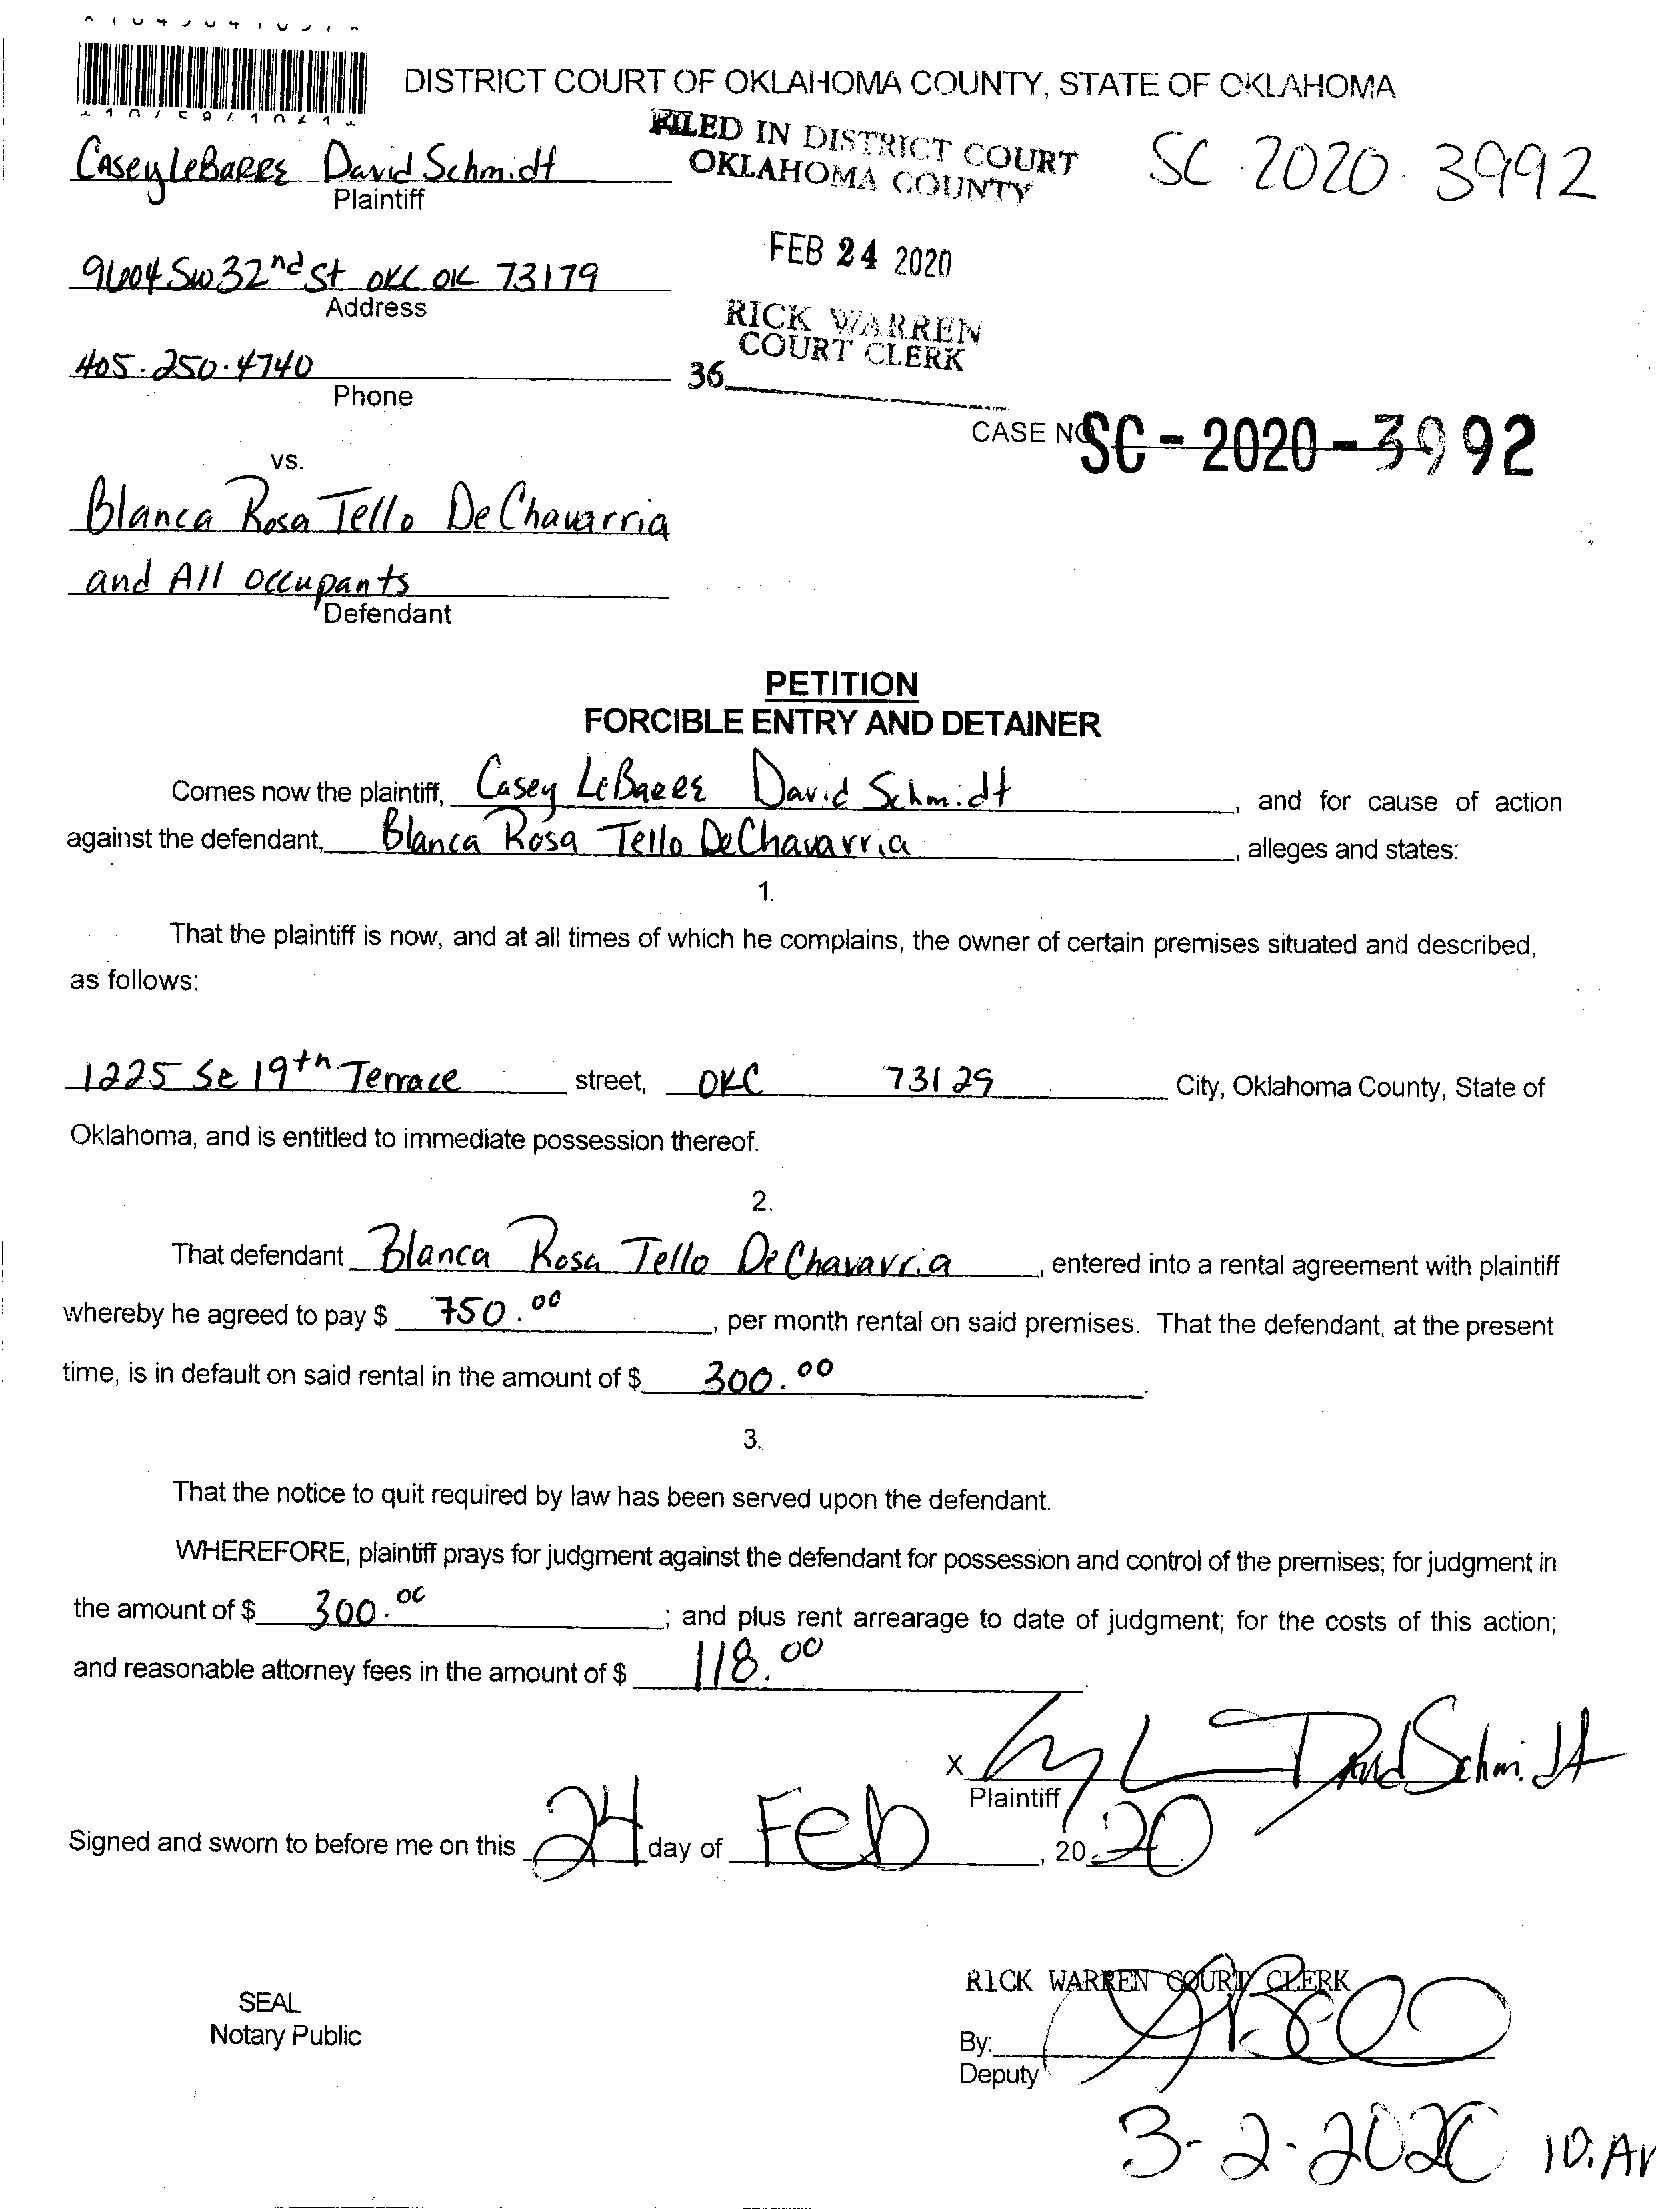 DISTRICT COURT OF OKLAHOMA COUNTY, STATE OF OKLAHOMA
FILED IN DISTRICT COURT
OKLAHOMA COUNTY
SC 2020-3992
Casey LeBarre David Schmidt
Plaintiff
FEB 24 2020
9604 SW 32nd St OKC OK 73179
Address
RICK WARREN
COURT CLERK
405-250-4740
36
Phone
CASE NO SC-2020-3992
vs.
Blanca Rosa Tello DeChavarria
and All occupants
Defendant
PETITION
FORCIBLE ENTRY AND DETAINER
Comes now the plaintiff, Casey LeBarre David Schmidt, and for cause of action
against the defendant, Blanca Rosa Tello DeChavarria, alleges and states:
1.
That the plaintiff is now, and at all times of which he complains, the owner of certain premises situated and described,
as follows:
1225 SE 19th Terrace street, OKC 73129 City, Oklahoma County, State of
Oklahoma, and is entitled to immediate possession thereof.
2.
That defendant Blanca Rosa Tello DeChavarria, entered into a rental agreement with plaintiff
whereby he agreed to pay $ 750.00, per month rental on said premises. That the defendant, at the present
time, is in default on said rental in the amount of $ 300.00.
3.
That the notice to quit required by law has been served upon the defendant.
WHEREFORE, plaintiff prays for judgment against the defendant for possession and control of the premises; for judgment in
the amount of $ 300.00; and plus rent arrearage to date of judgment; for the costs of this action;
and reasonable attorney fees in the amount of $ 118.00
X David Schmidt
Plaintiff
Signed and sworn to before me on this 24 day of Feb, 2020
RICK WARREN COURT CLERK
SEAL
Notary Public
By:
Deputy
3-2-2020 10:AM